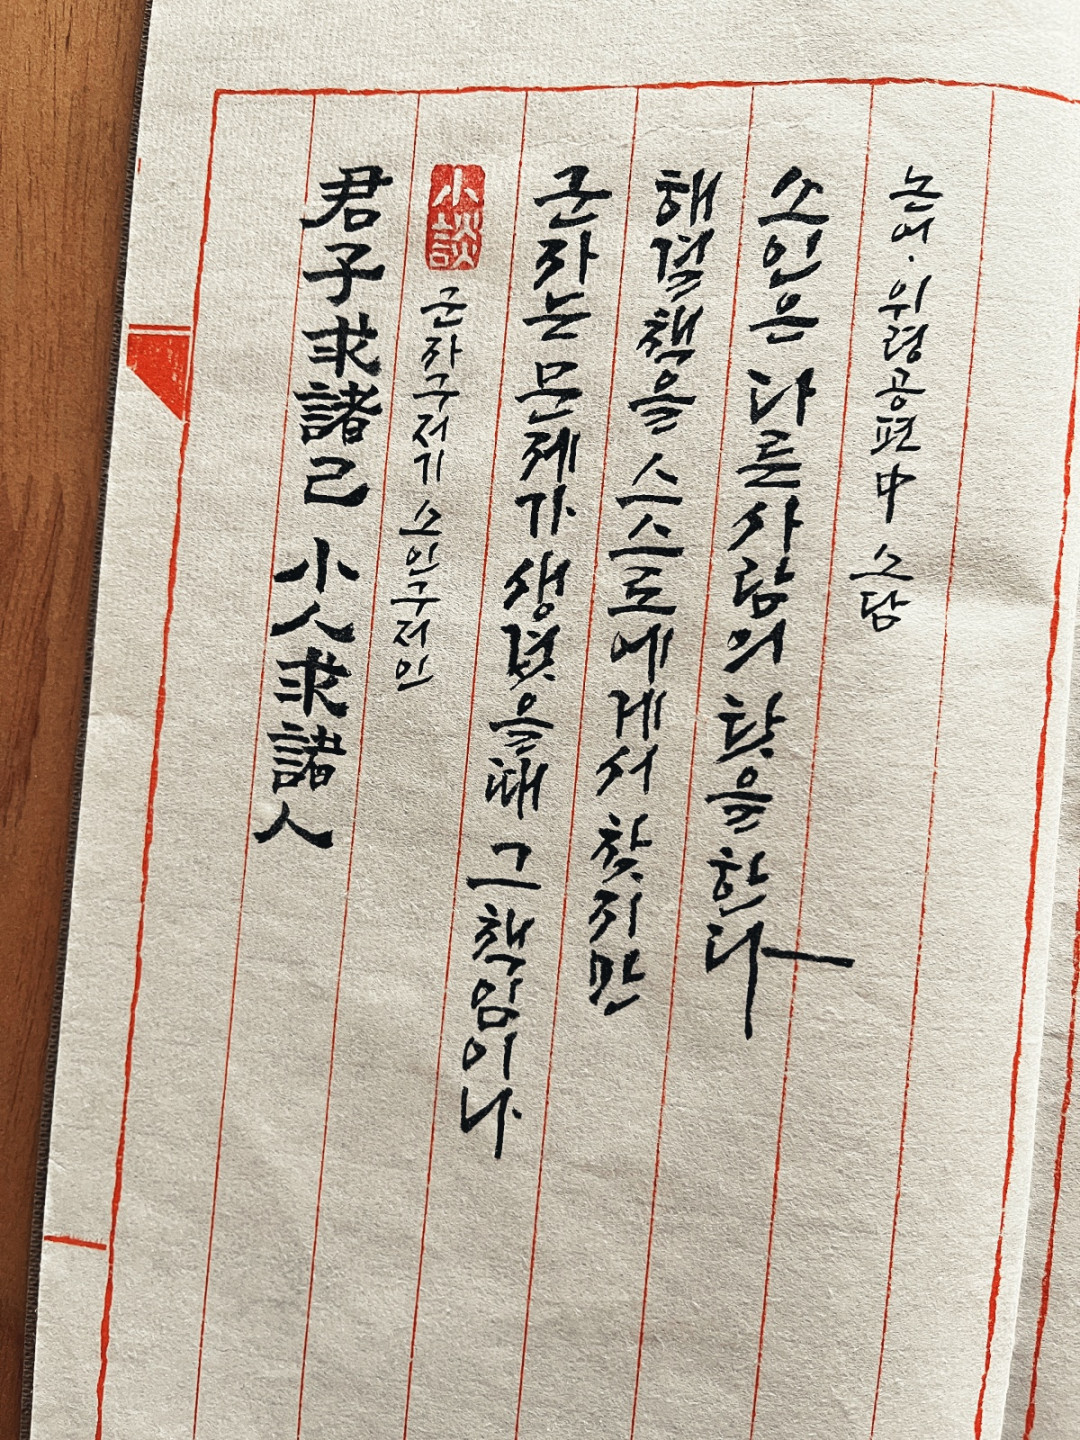 君子求諸己 小人求諸人
小談
군자구저기 소인구저인
군자는 문제가 생겼을때 그 책임이나
해결책을 스스로에게서 찾지만
소인은 다른사람의 탓을 한다
논어·위령공편中 소담